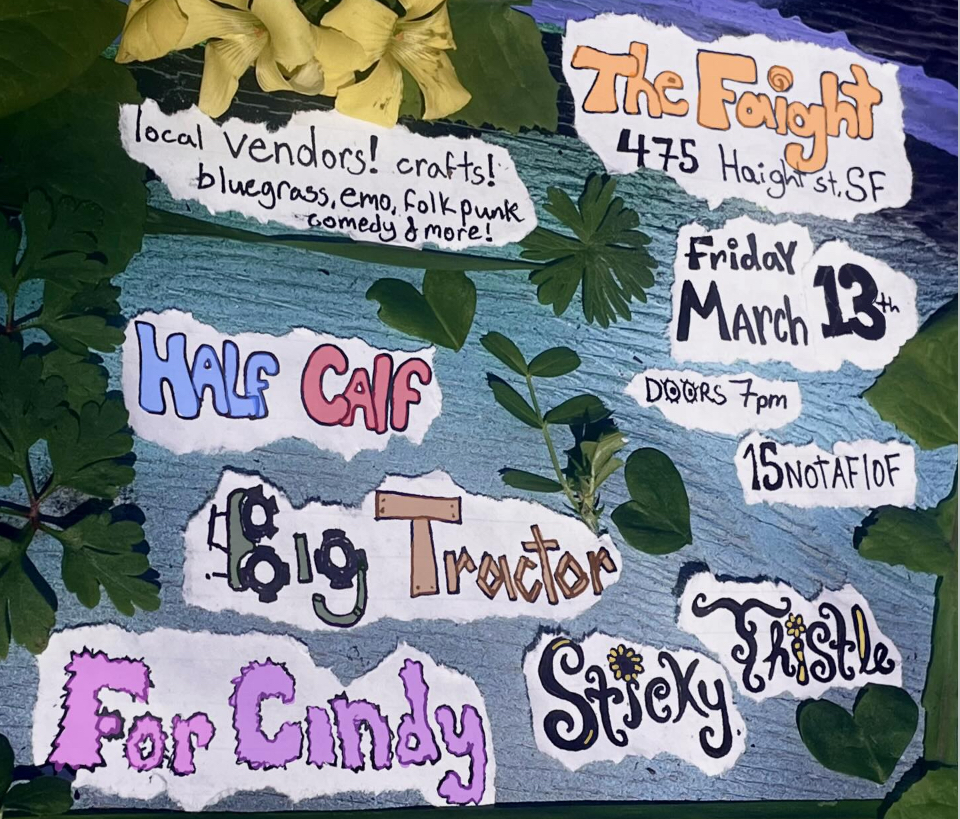 The Faight
475 Haight st, SF
local vendors! crafts!
bluegrass, emo, folk punk
comedy & more!
Friday
March 13th
DOORS 7pm
15 NOTAFLOF
HALF CALF
Big Tractor
Sticky Thistle
For Cindy